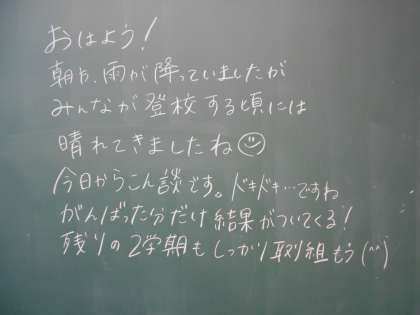 おはよう!
朝方、雨が降っていましたが
みんなが登校する頃には
晴れてきましたね☺
今日からこん談です。ドキドキ…ですね
がんばった分だけ結果がついてくる!
残りの2学期もしっかり取り組もう(^^)